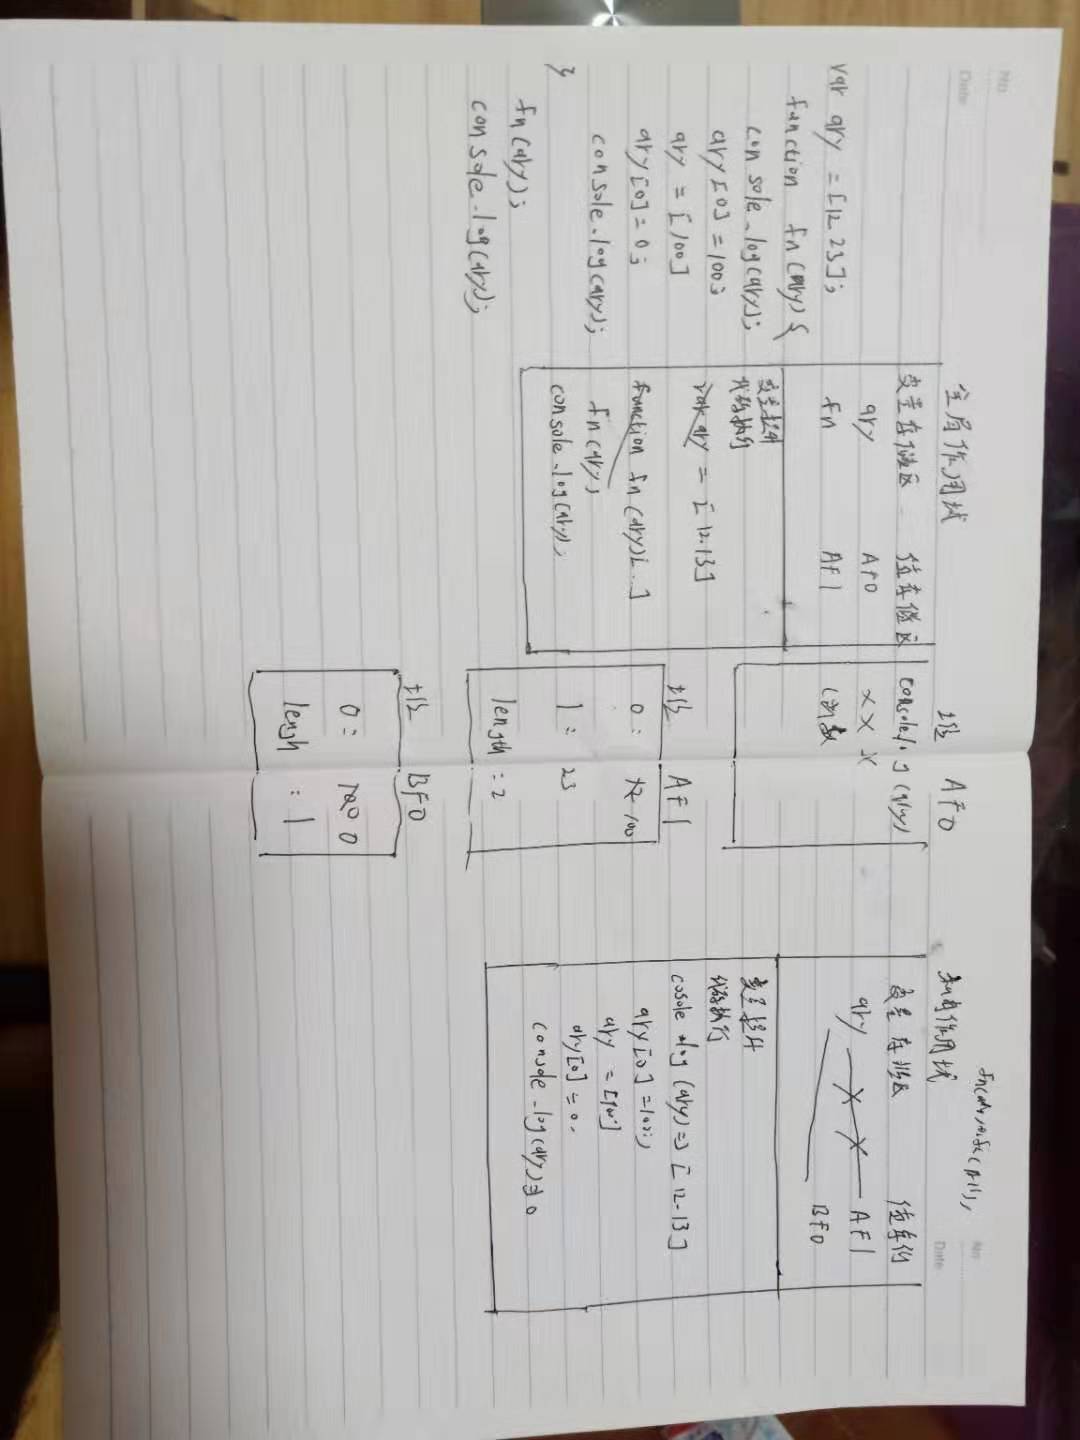 No
Date
var ary = [12 23];
function fn(ary){
console.log(ary);
ary[0]=100;
ary = [100]
ary[0]=0;
console.log(ary);
}
fn(ary);
console.log(ary);
全局作用域
变量存储区 值存储区
ary AF0
fn AF1
变量提升
代码执行
var ary = [12.13]
function fn(ary)[...]
fn(ary)
console.log(ary);
堆 AF0
console.log(ary)
x x x
堆 AF1
0: 12 100
1: 23
length: 2
堆 BF0
0: 100 0
lengh: 1
fn(ary)
私有作用域
变量存储区 值存储
ary AF1
BF0
变量提升
代码执行
cosole.log(ary)=>[12.13]
ary[0]=100;
ary = [100]
ary[0]=0.
console.log(ary)=>0
No
Date